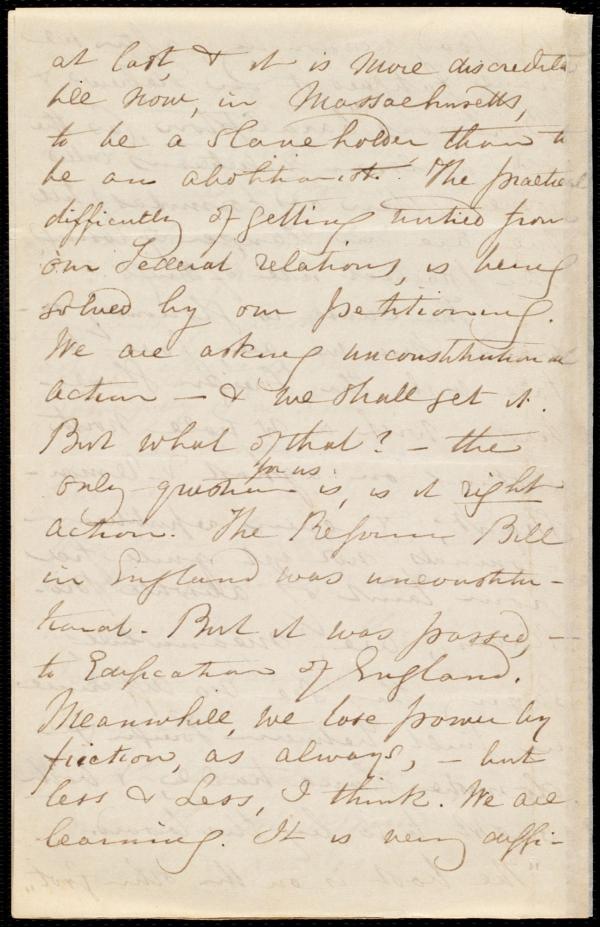 at last, & it is more discredita
ble now, in Massachusetts,
to be a slaveholder than to
be an abolitionist. The practical
difficulty of getting untied from
our Federal relations, is being
solved by our petitioning.
We are asking unconstitutional
action — & we shall get it.
But what of that? — the
only question for us is, is it right
action. The Reform Bill
in England was unconstitu-
tional. But it was passed, —
to Edification of England.
Meanwhile, we lose power by
friction, as always, — but
less & less, I think. We are
learning. It is very diffi-